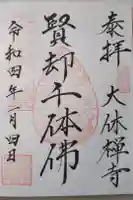 奉拝 大休禅寺
賢却千体佛
令和四年一月四日